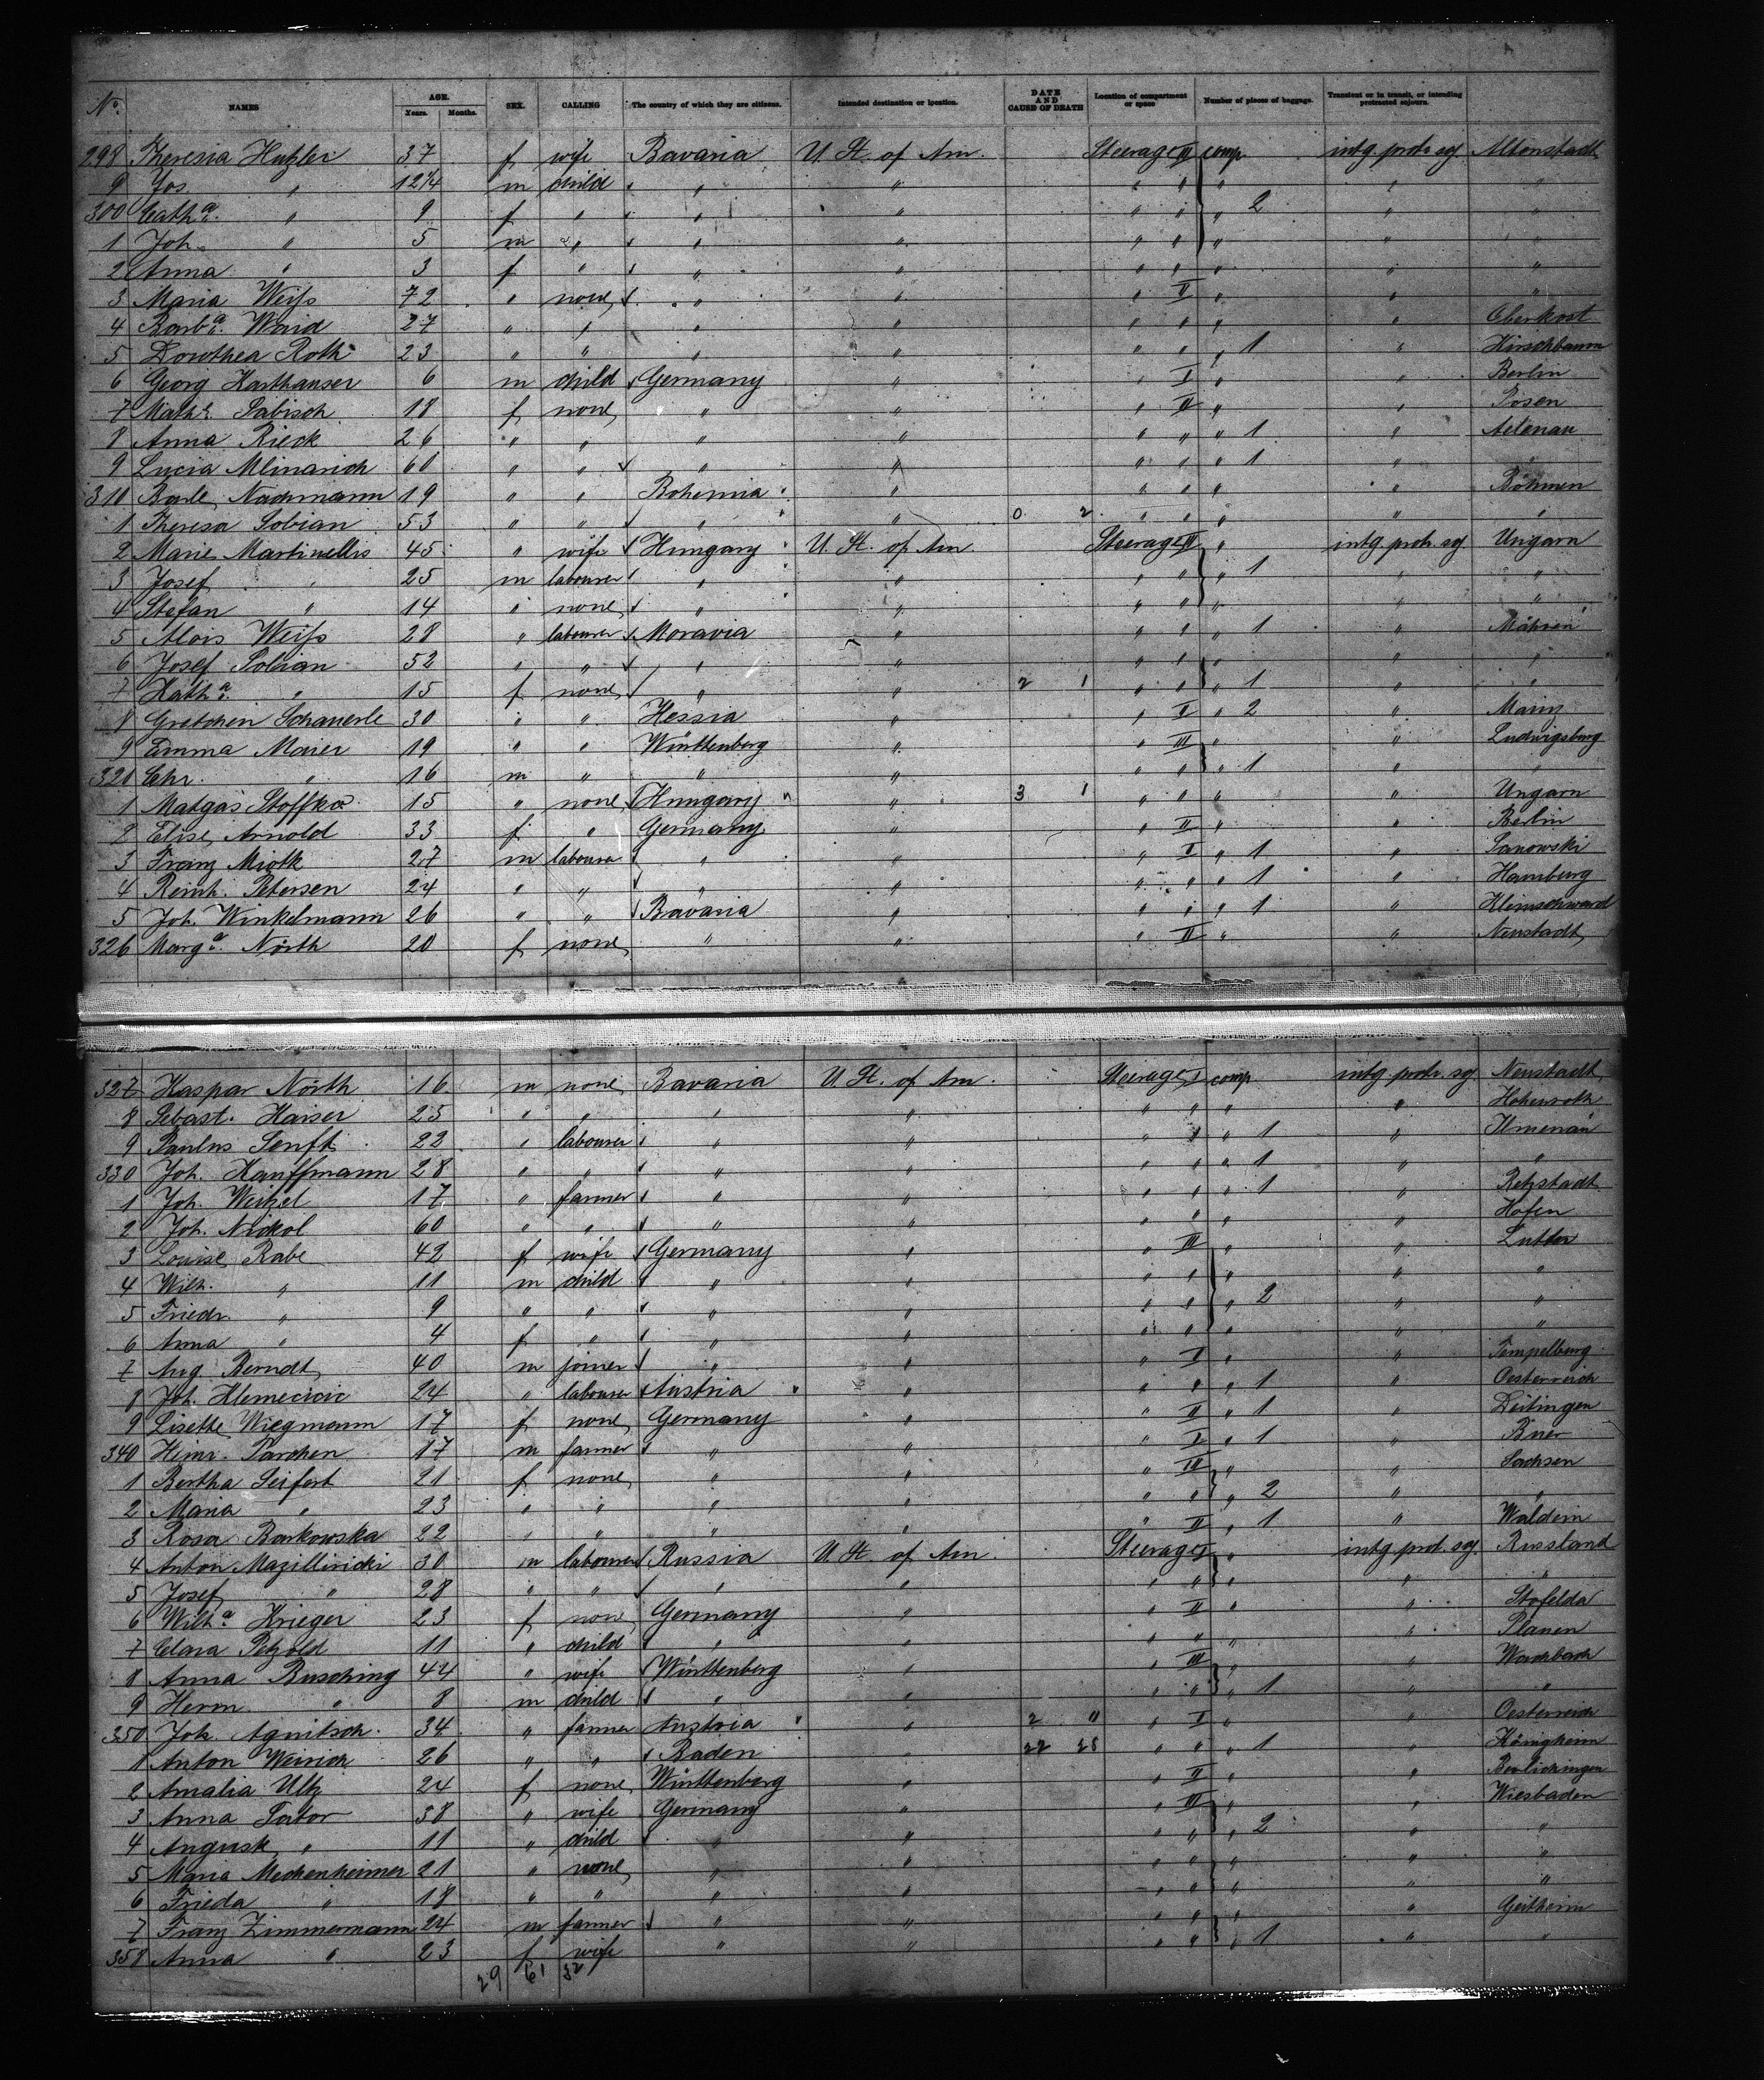 No. NAMES AGE. Years. Months. SEX. CALLING The country of which they are citizens. Intended destination or location. DATE AND CAUSE OF DEATH Location of compartment or space Number of pieces of baggage. Transient or in transit, or intending protracted sojourn.
298 Theresia Hutzler 37 f wife Bavaria U. St. of Am. Steerage II comp. intg protr. soj. Altenstadt
9 Jos. " 12 1/4 m child " " " " " " " " "
300 Catha. " 9 f " " " " " " 2 " "
1 Joh. " 5 m " " " " " " " "
2 Anna " 3 f " " " " " " " "
3 Maria Weiss 72 " none " " " II " " "
4 Barba. Waid 27 " " " " " " " " Oberkost
5 Dorothea Roth 23 " " " " " " " 1 " Hirschbaum
6 Georg Karthauser 6 m child Germany " " I " " Berlin
7 Mathe. Sabisch 18 f none " " " II " " Posen
8 Anna Rieck 26 " " " " " " " 1 " Altenau
9 Lucia Mlinarich 60 " " " " " " " 1 " "
310 Barb. Nachmann 19 " " Bohemia " " " " " Böhmen
1 Theresa Sobian 53 " " " " 0 2 " " " " "
2 Marie Martinellis 45 " wife Hungary U. St. of Am. Steerage II " intg protr. soj. Ungarn
3 Josef " 25 m labourer " " " " " 1 " "
4 Stefan " 14 " none " " " " " " "
5 Alois Weiss 28 " labourer Moravia " " " " 1 " Mähren
6 Josef Sobian 52 " " " " " " " " "
7 Katha. " 15 f none " " 2 1 " " " 1 " "
8 Gretchen Schauerle 30 " " Hessia " " I " 2 " Mainz
9 Emma Maier 19 " " Württenberg " " III " " Ludwigsburg
320 Chr. " 16 m " " " " " " 1 " "
1 Matgas Stoffka 15 " none Hungary " " 3 1 " " " " Ungarn
2 Elise Arnold 33 f " Germany " " II " " Berlin
3 Franz Mioth 27 m labourer " " " I " 1 " Sanowski
4 Reinh. Petersen 24 " " " " " " " 1 " Hamburg
5 Joh. Winkelmann 26 " " Bavaria " " " " 1 " Klemschward
326 Marga. Nörth 20 f none " " " II " " Neustadt
327 Kaspar Nörth 16 m none Bavaria U. St. of Am. Steerage I comp. intg protr. soj. Neustadt
8 Sebast. Kaiser 25 " " " " " " " " Hohenroth
9 Paulus Senft 22 " labourer " " " " " 1 " Ilmenau
330 Joh. Kauffmann 28 " " " " " " " 1 " "
1 Joh. Weigel 17 " farmer " " " " " 1 " Retzstadt
2 Joh. Nickol 60 " " " " " " " " Hofen
3 Louise Rabe 42 f wife Germany " " III " " Lutter
4 Wilh. " 11 m child " " " " " " "
5 Friedr. " 9 " " " " " " " 2 " "
6 Anna " 4 f " " " " " " " "
7 Aug. Berndt 40 m joiner " " " I " " Tempelburg
8 Joh. Klemecicic 24 " labourer Austria " " " " " 1 " Oesterreich
9 Lisette Wiegmann 17 f none Germany " " II " 1 " Deilingen
340 Heinr. Parchen 17 m farmer " " " I " 1 " Buer
1 Bertha Seifert 21 f none " " " III " " Sachsen
2 Maria " 23 " " " " " " " 2 " "
3 Rosa Barkowska 22 " " " " " II " 1 " Waldem
4 Anton Mazillinicki 30 m labourer Russia U. St. of Am. Steerage I " intg prot. soj. Russland
5 Josef " 28 " " " " " " " " "
6 Wilha. Krieger 23 f none Germany " " II " " Stofelda
7 Clara Petzold 11 " child " " " " " " Plauen
8 Anna Busching 44 " wife Württenberg " " III " " Wachbach
9 Herm. " 8 m child " " " " " 1 " "
350 Joh. Agnitsch 34 " farmer Austria " " 2 " " I " " Oesterreich
1 Anton Weirich 26 " " Baden " 22 28 " " " 1 " Königheim
2 Amalia Ulz 24 f none Württenberg " " II " " Berlichingen
3 Anna Tabor 38 " wife Germany " " III " " Wiesbaden
4 August. " 11 " child " " " " " 2 " "
5 Maria Mechenheimer 21 " none " " " " " " "
6 Frieda " 18 " " " " " " " " "
7 Franz Zimmermann 24 m farmer " " " " " " Geitheim
358 Anna " 23 f wife " " " " " 1 " "
29 61 32